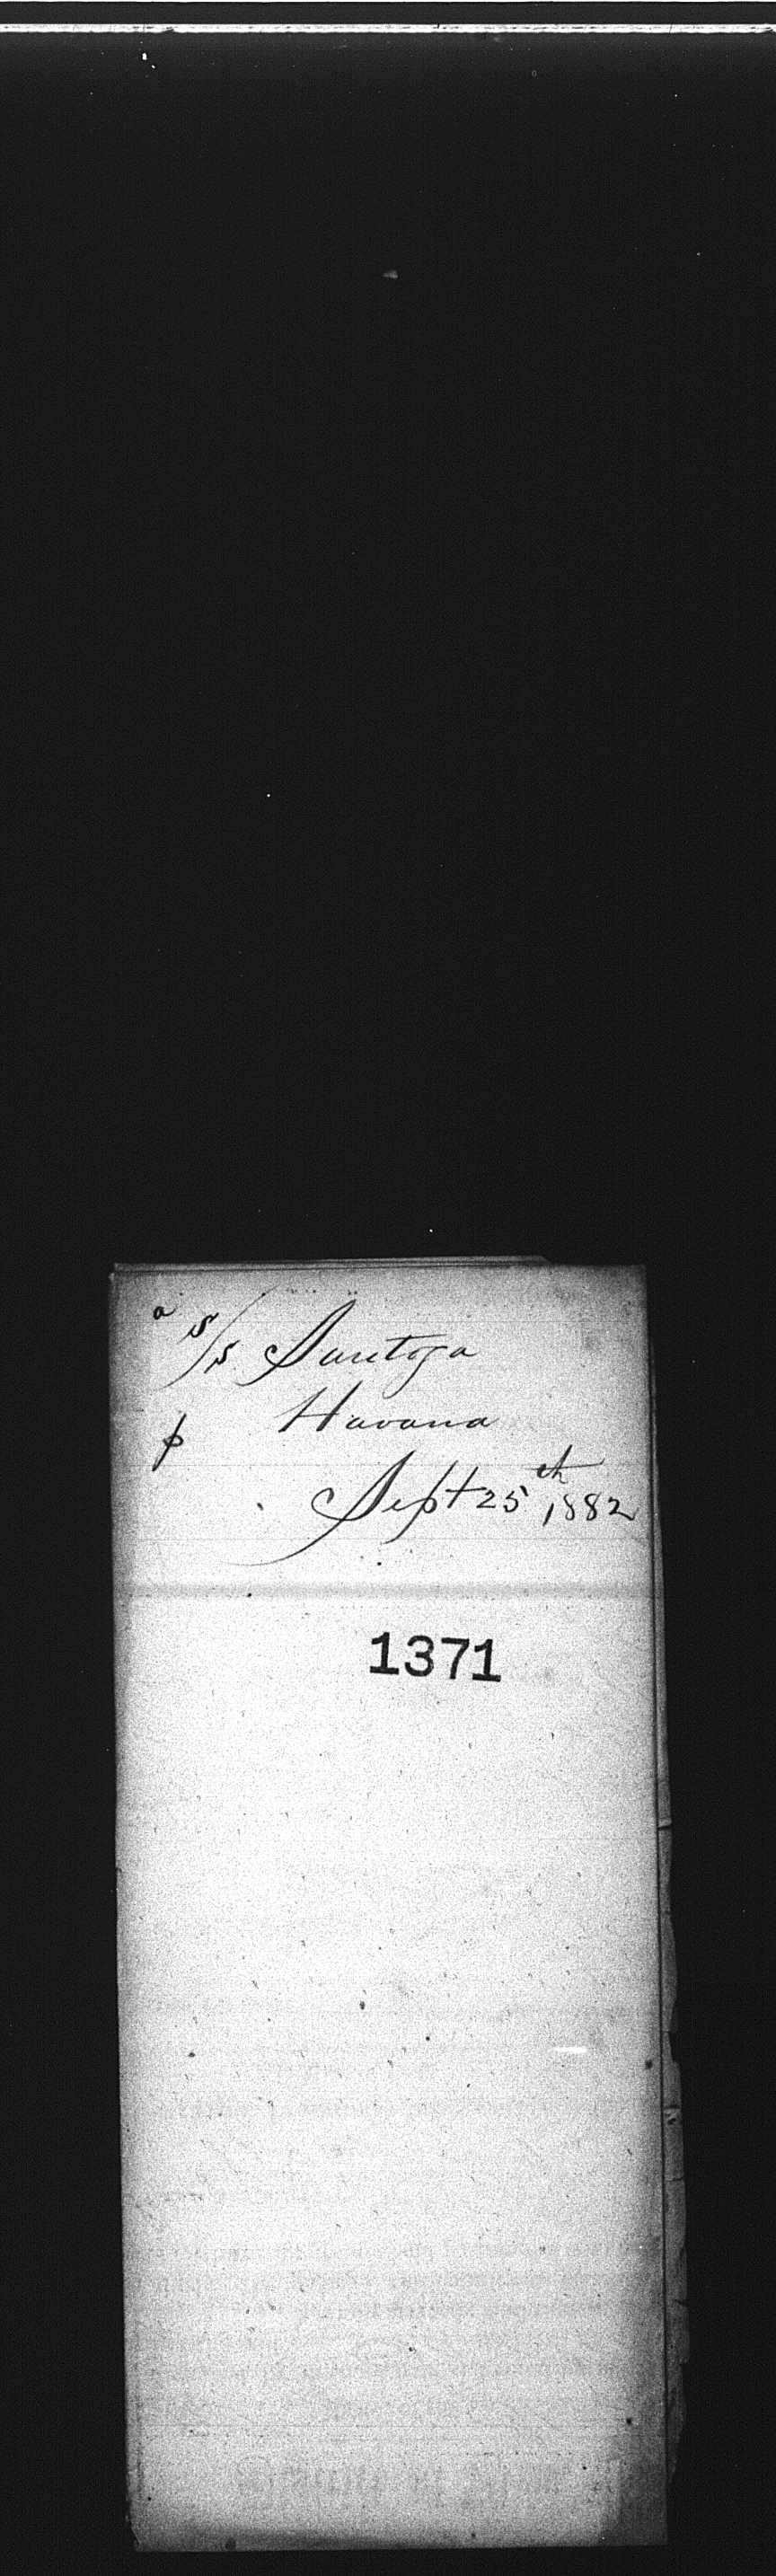 a S/S Saratoga
p Havana
Sept 25th 1882
1371